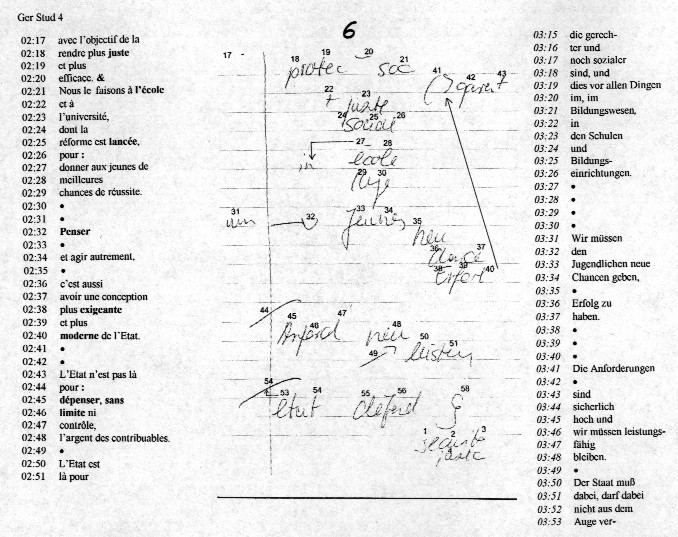 Ger Stud 4
02:17 avec l'objectif de la
02:18 rendre plus juste
02:19 et plus
02:20 efficace. &
02:21 Nous le faisons à l'école
02:22 et à
02:23 l'université,
02:24 dont la
02:25 réforme est lancée,
02:26 pour :
02:27 donner aux jeunes de
02:28 meilleures
02:29 chances de réussite.
02:30 •
02:31 •
02:32 Penser
02:33 •
02:34 et agir autrement,
02:35 •
02:36 c'est aussi
02:37 avoir une conception
02:38 plus exigeante
02:39 et plus
02:40 moderne de l'Etat.
02:41 •
02:42 •
02:43 L'Etat n'est pas là
02:44 pour :
02:45 dépenser, sans
02:46 limite ni
02:47 contrôle,
02:48 l'argent des contribuables.
02:49 •
02:50 L'Etat est
02:51 là pour
6
17 -
18 19 20 21
protec soc
41 42 43
22 23
+ juste
24 25 26
sociale
27 28
in école
29 30
31 32 33 34
Jeunes
35
neu
36 37
38 39 40
Erfort
44 45 46 47 48
Anford neu
49 50 51
leisten
54 53 54 55 56 58
état défend
1 2 3
juste
03:15 die gerech-
03:16 ter und
03:17 noch sozialer
03:18 sind, und
03:19 dies vor allen Dingen
03:20 im, im
03:21 Bildungswesen,
03:22 in
03:23 den Schulen
03:24 und
03:25 Bildungs-
03:26 einrichtungen.
03:27 •
03:28 •
03:29 •
03:30 •
03:31 Wir müssen
03:32 den
03:33 Jugendlichen neue
03:34 Chancen geben,
03:35 •
03:36 Erfolg zu
03:37 haben.
03:38 •
03:39 •
03:40 •
03:41 Die Anforderungen
03:42 •
03:43 sind
03:44 sicherlich
03:45 hoch und
03:46 wir müssen leistungs-
03:47 fähig
03:48 bleiben.
03:49 •
03:50 Der Staat muß
03:51 dabei, darf dabei
03:52 nicht aus dem
03:53 Auge ver-